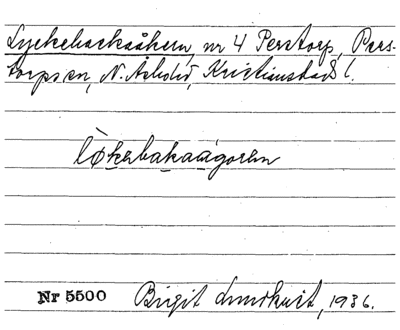 Lyckebacksåkern, nr 4 Perstorp, Pers-
torps sn, N. Åsbo hd, Kristianstads l.
lø̀kebakaágoren
Nr 5500 Birgit Lundkvist, 1936.